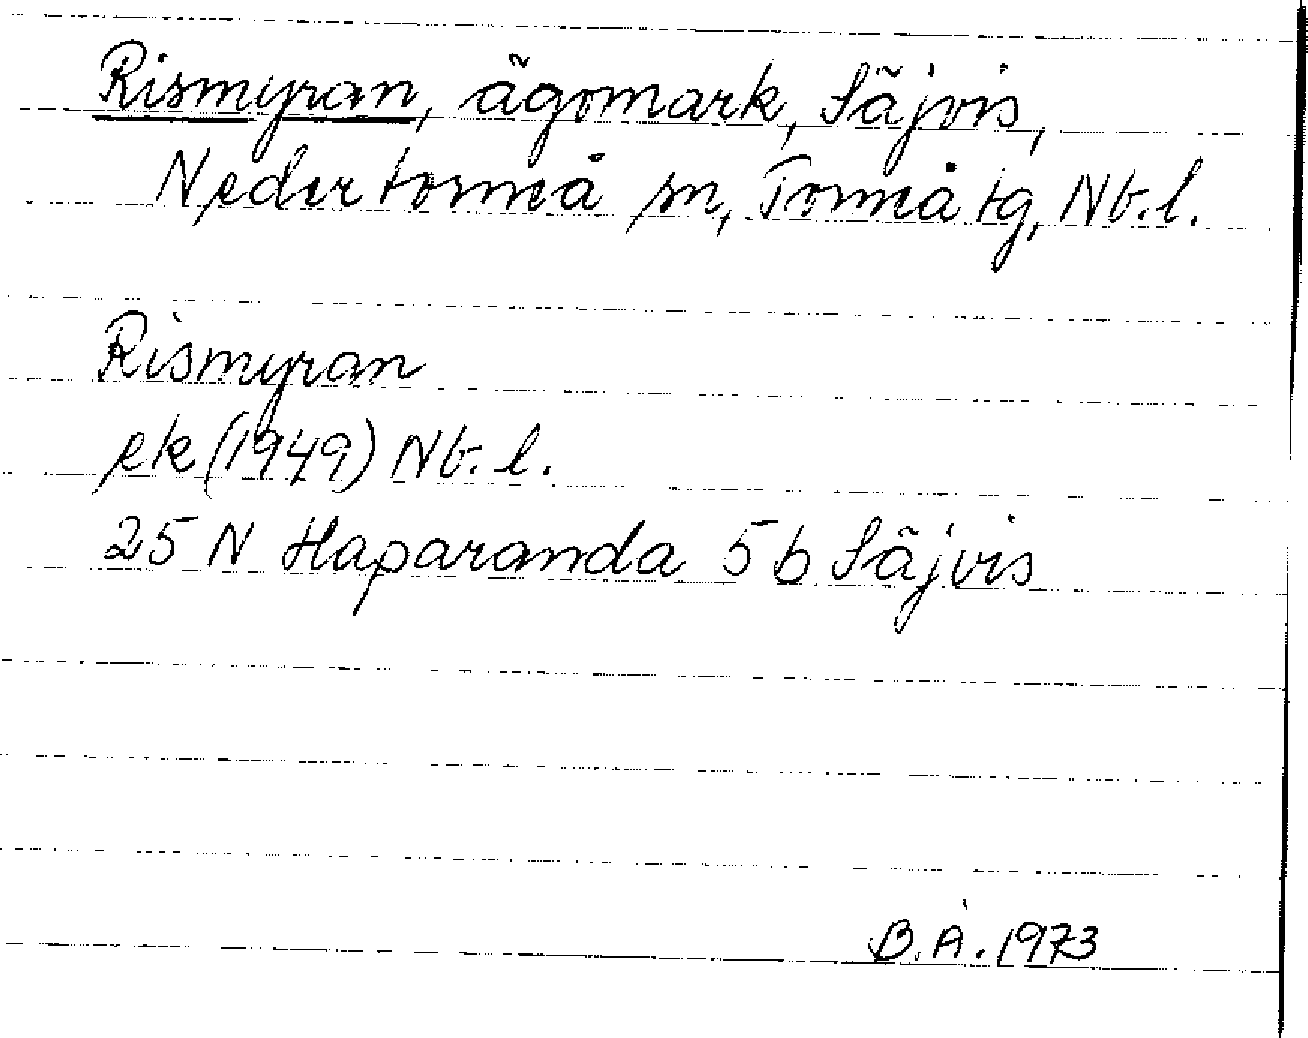 Rismyran, ägomark, Säjvis,
Nedertorneå sn, Torneå tg, Nb.l.
Rismyran
ek (1949) Nb.l.
25 N Haparanda 5b Säjvis
B.Å. 1973